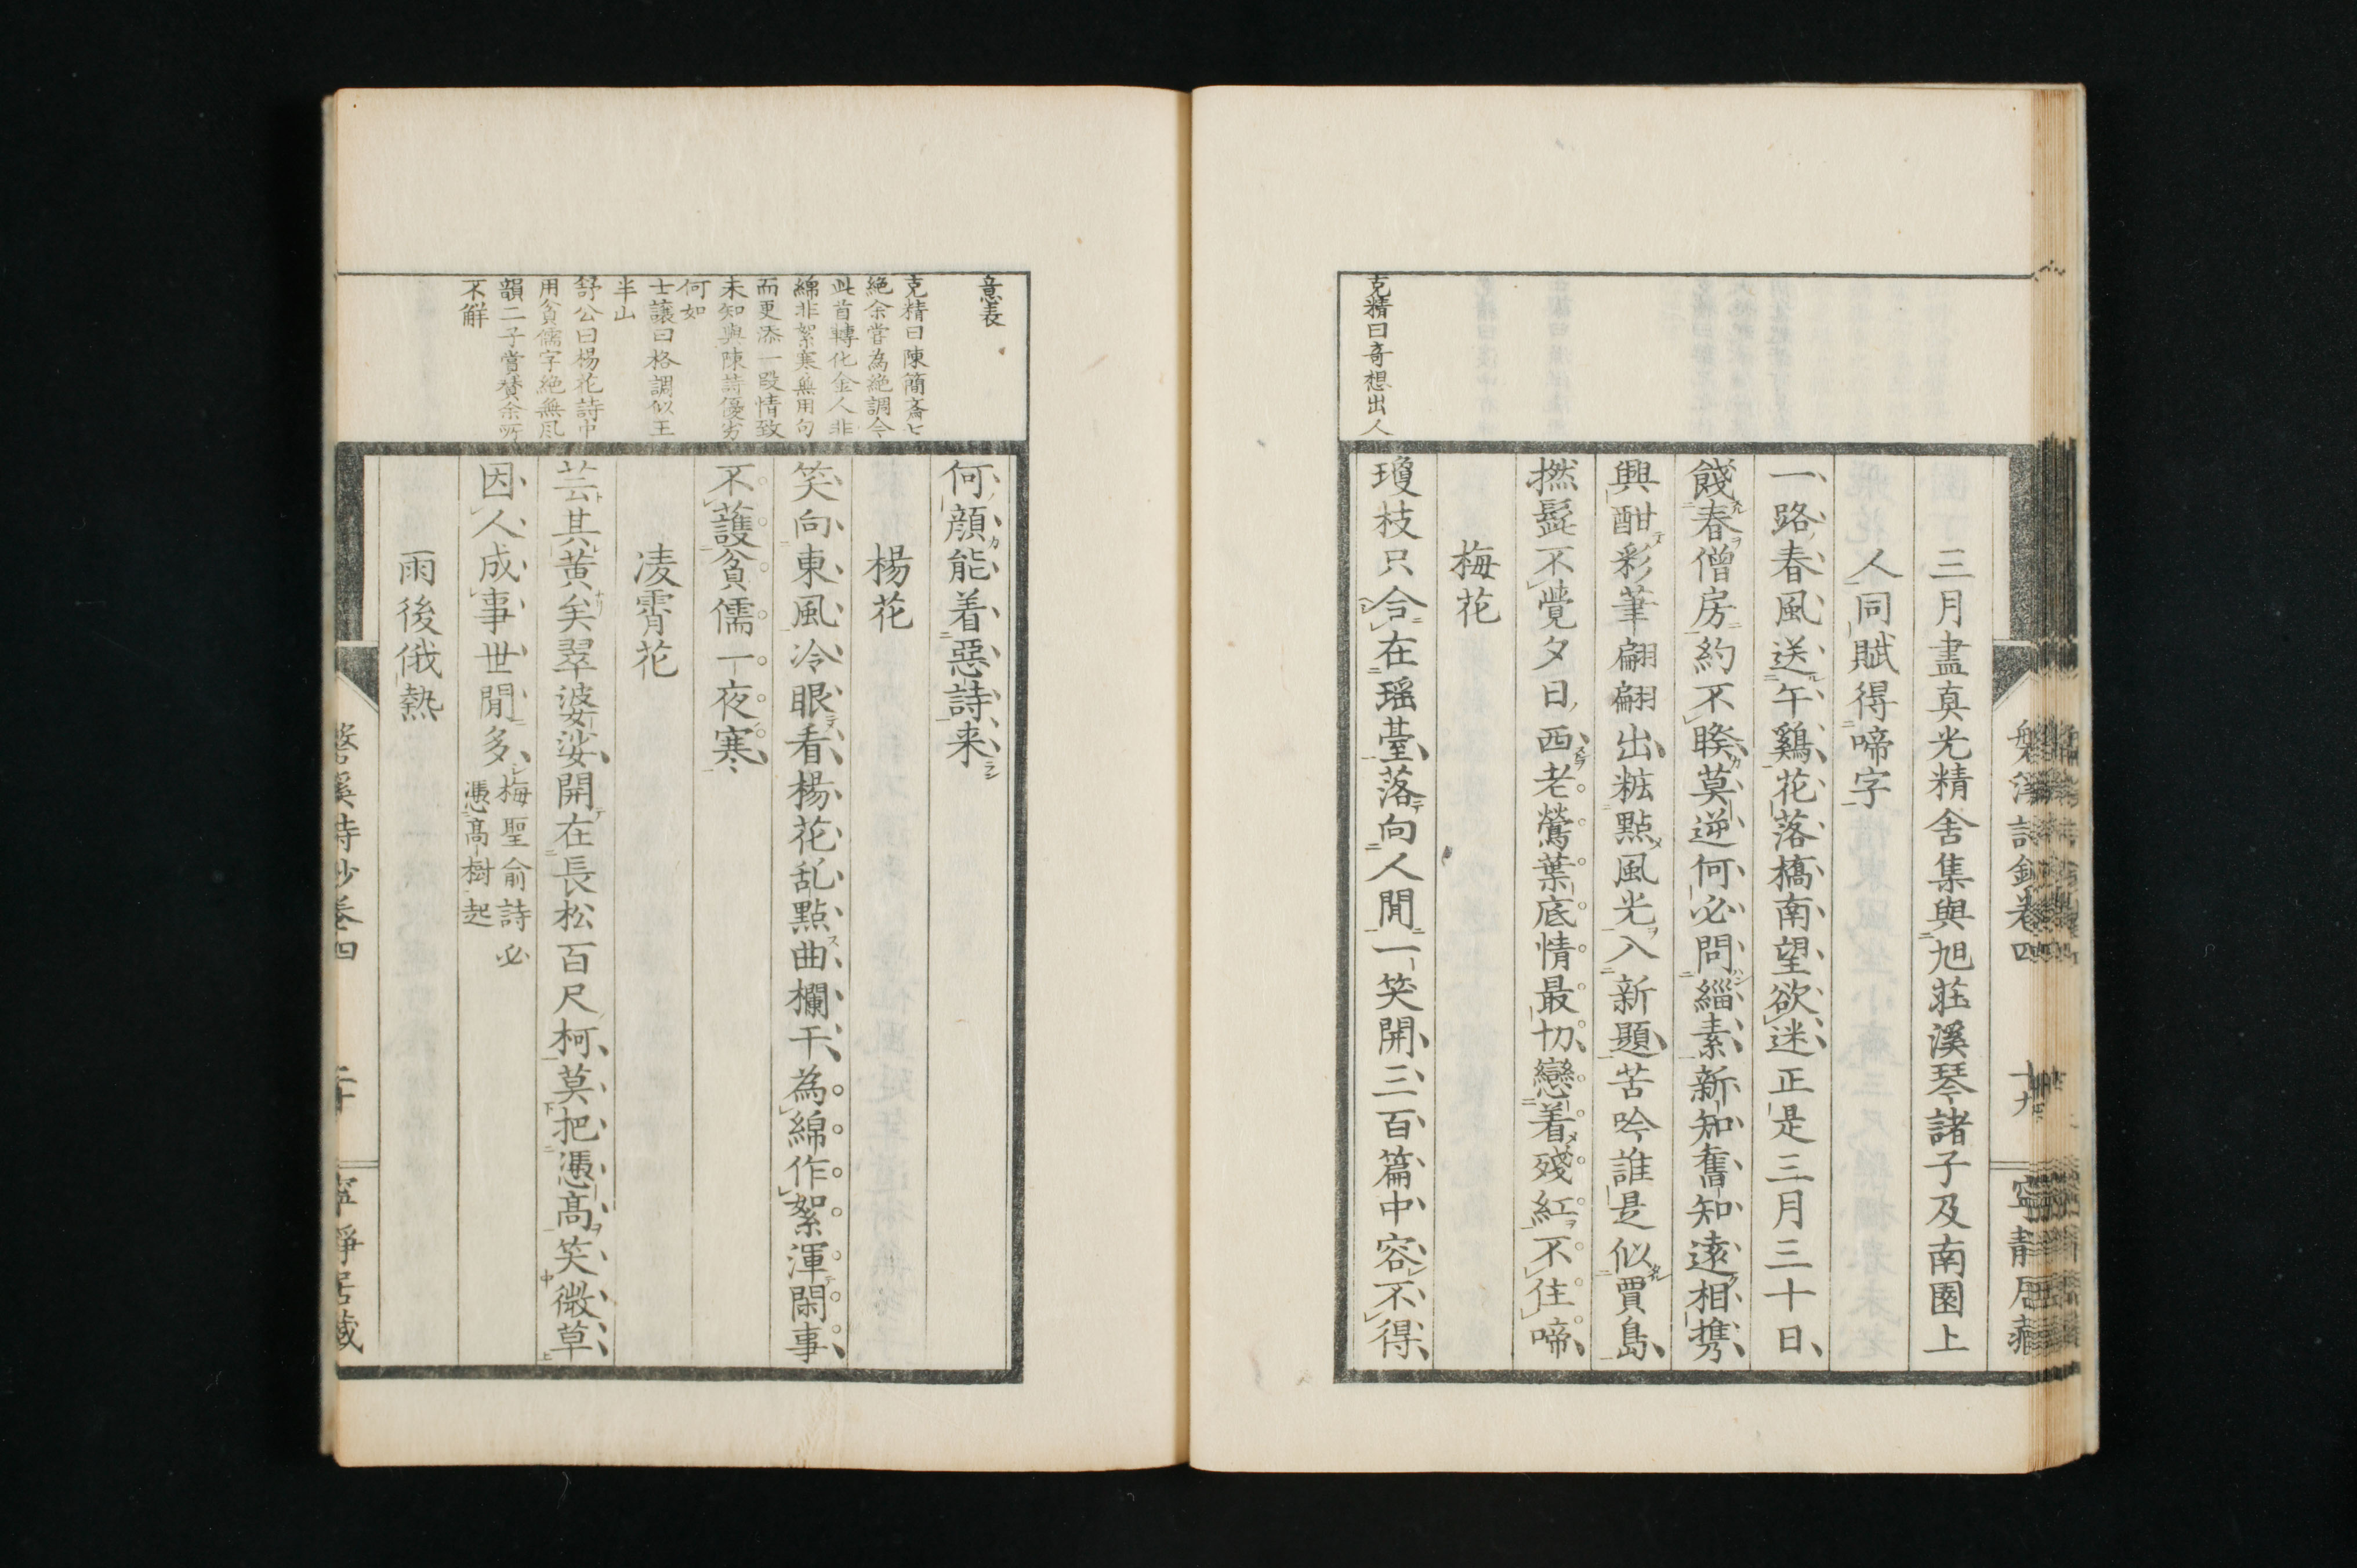 三月盡真光精舎集與旭荘溪琴諸子及南園上
人同賦得啼字
一路春風送午鷄花落橋南望欲迷正是三月三十日
餞春僧房約不睽莫逆何必問緇素新知舊知遠相携
興酣彩筆翩翩出粧點風光入新題苦吟誰是似賈島
撚髭不覺夕日西老鶯葉底情最切戀着殘紅不住啼
梅花
克精曰奇想出人
瓊枝只合在瑶䑓落向人間一笑開三百篇中容不得
意表
何顔能着惡詩来
楊花
克精曰陳簡齋七
絶余嘗為絶調今
此首轉化金人非
綿非絮寒無用句
而更添一段情致
未知與陳詩優劣
何如
笑向東風冷眼看楊花乱點曲欄干為綿作絮渾閑事
不護貧儒一夜寒
士讓曰格調似王
半山
舒公曰楊花詩中
用貧儒字絶無風
韻二子嘗賛余所
不解
凌霄花
芸其黄矣翠婆娑開在長松百尺柯莫把憑高笑微草
因人成事世間多
梅聖俞詩必
憑高樹起
雨後俄熱
磐溪詩鈔卷四
二十
寧静居藏